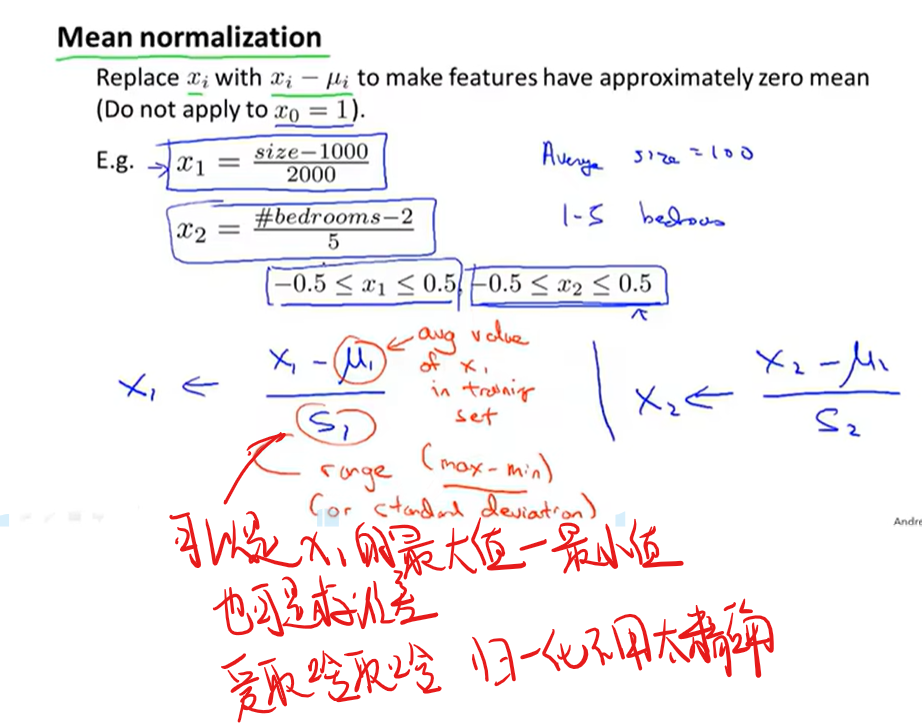 Mean normalization
Replace xᵢ with xᵢ − μᵢ to make features have approximately zero mean
(Do not apply to x₀ = 1).
E.g. → x₁ = (size−1000)/2000
Average size = 100
x₂ = (#bedrooms−2)/5
1-5 bedrooms
−0.5 ≤ x₁ ≤ 0.5, −0.5 ≤ x₂ ≤ 0.5
x₁ ← (x₁ − μ₁)/S₁
avg value
of x₁
in training
set
x₂ ← (x₂ − μ₂)/S₂
range (max-min)
(or standard deviation)
Andre
可以是x₁的最大值一最小值
也可是标准差
爱取啥取啥 归一化不用太精确